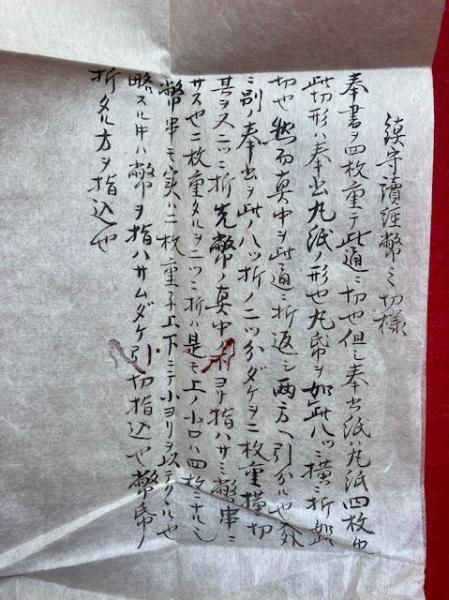 鎮守讀經幣之切様
奉書ヲ四枚重テ此通ニ切也但シ奉書紙ハ丸紙四枚也
此切形ハ奉書丸紙ノ形也丸帋ヲ如此八ツニ横ニ折如此
切也然而真中ヲ此通ニ折返シ両方ヘ引分ルヤ
ニ別ノ奉書ヲ此ノ八ツ折ノ二ツ分ダケヲ二枚重横切
其ヲ又二ツニ折先幣ノ真中ノ下ヨリ指ハサミ幣串ニ
サス也二枚重タルヲ二ツニ折ハ是モ上ノ小口ハ四枚ニナル也
幣串モ実ニ二枚重子上下ニテ小ヨリヲ以テクルヤ
略スル中ハ幣ヲ指ハサムダケ引切指込也幣帋ノ
折タル方ヲ指込也